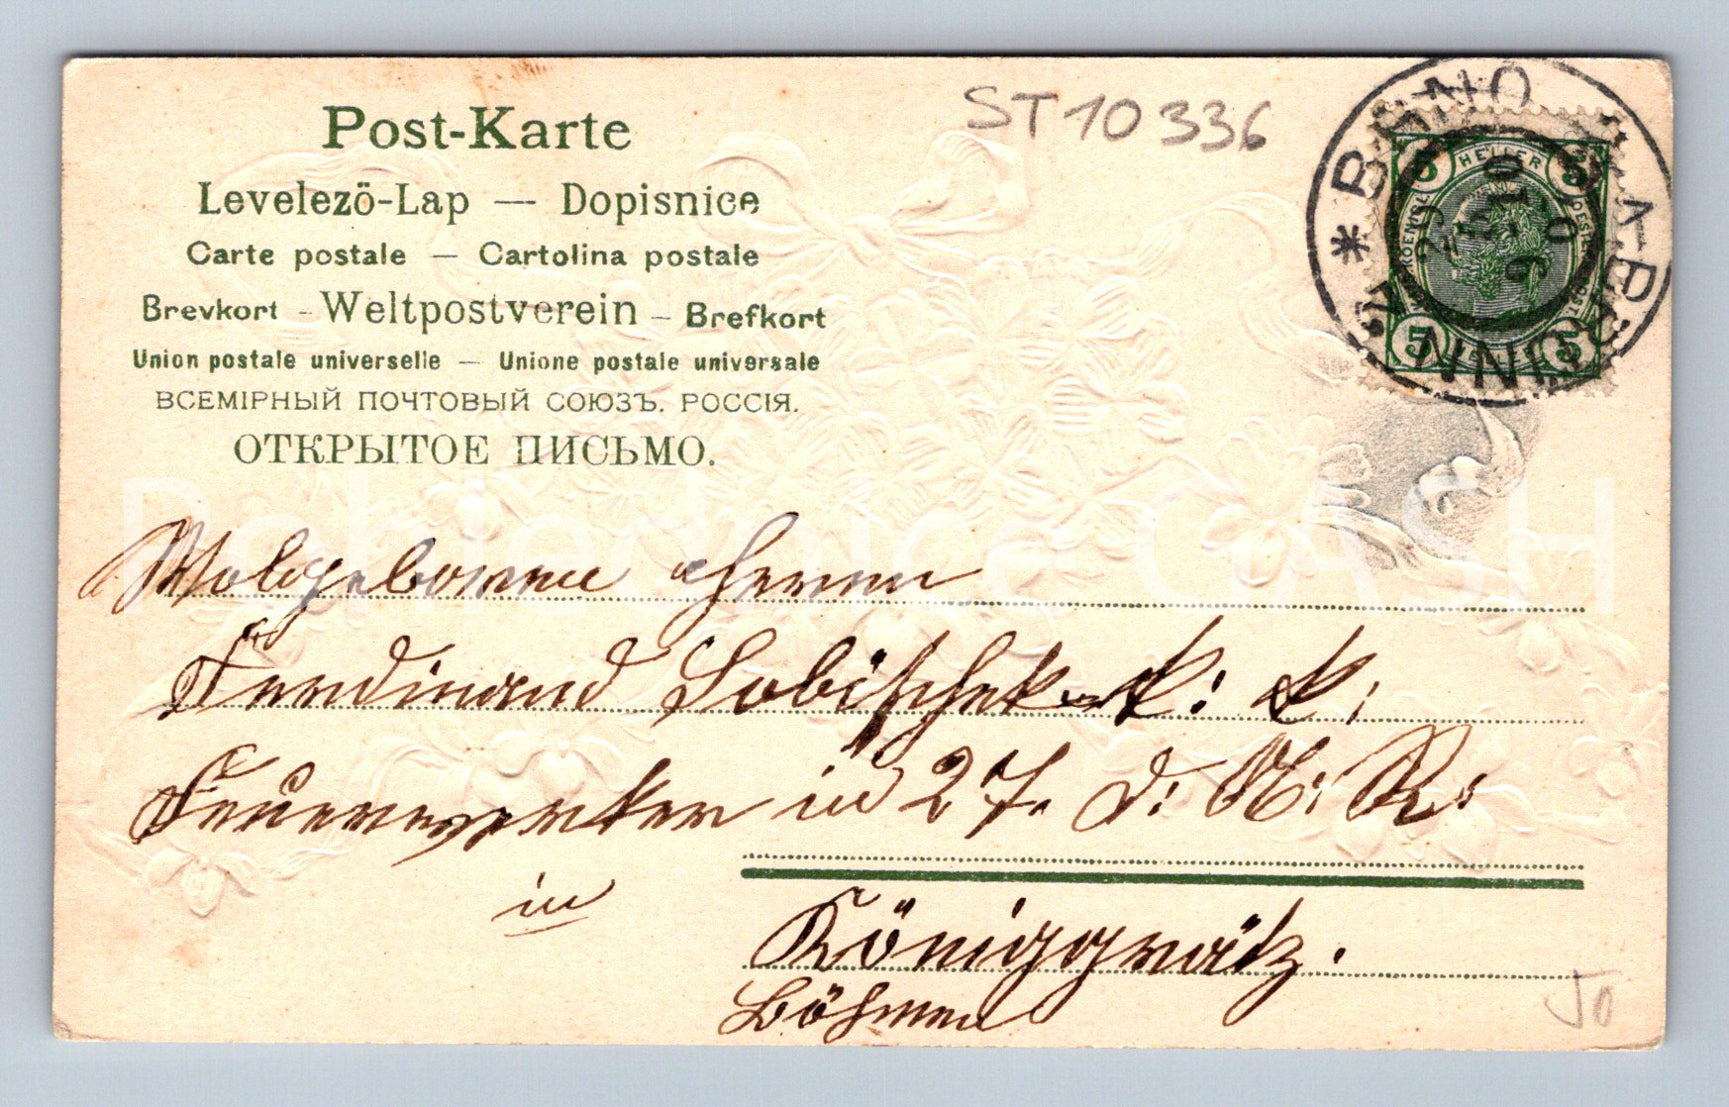 Post-Karte
ST10336
Levelezö-Lap — Dopisnice
Carte postale — Cartolina postale
Brevkort - Weltpostverein - Brefkort
Union postale universelle — Unione postale universale
ВСЕМІРНЫЙ ПОЧТОВЫЙ СОЮЗЪ. РОССІЯ.
ОТКРЫТОЕ ПИСЬМО.
BRNO
BRÜNN
5 HELLER 5
5 5
Wolgeborenen Herrn
Ferdinand Lobischek k: k:
Feuerwerker in 27. d: A: R:
in
Königgrätz.
Böhmen
50
Pohlednice CASH